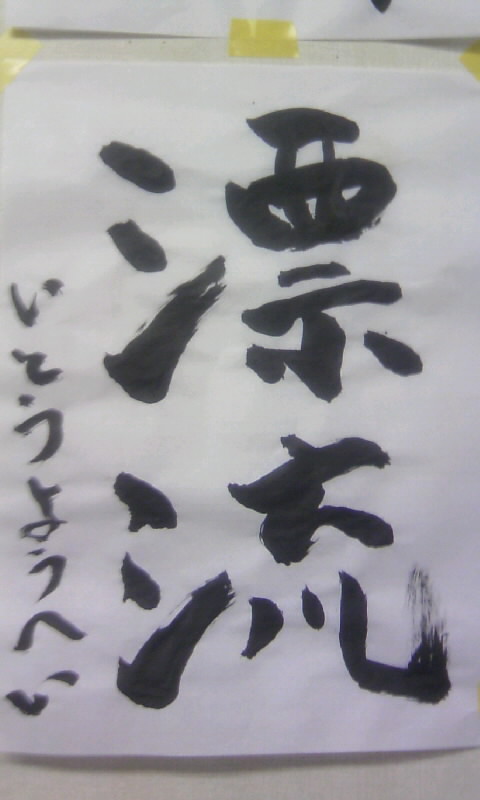 漂流
いとうようへい